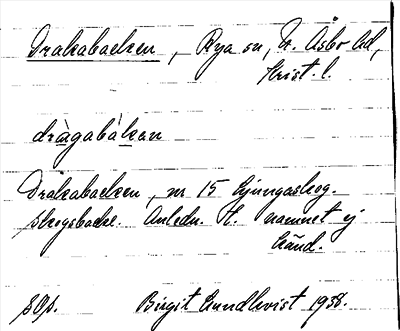 Drakabacken, Rya sn, N. Åsbo hd,
Krist. l.
dràgabàkan
Drakabacken, nr 15 Ljungaskog.
Skogsbacke. Anledn. t. namnet ej
känd.
Birgit Lundkvist 1938.